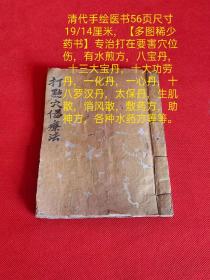 清代手绘医书56页尺寸
19/14厘米，【多图稀少
药书】专治打在要害穴位
伤，有水煎方，八宝丹，
十三大宝丹，十大功劳
丹，一化丹，一心丹，十
八罗汉丹，太保丹，生肌
散，消风散，敷药方，助
神方，各种水药方等等。
打點穴傷藥法